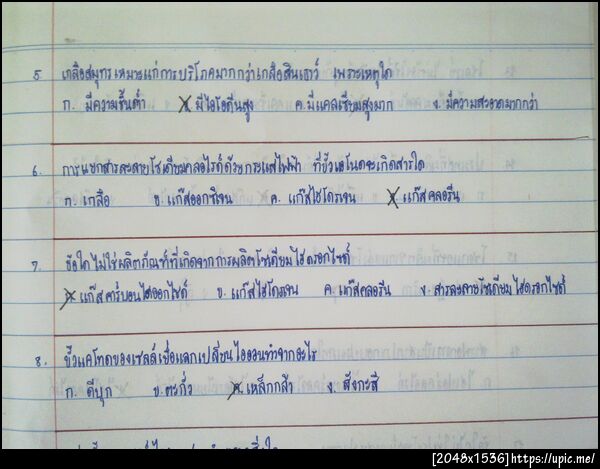 5. เกลือสมุทรเหมาะแก่การบริโภคมากกว่าเกลือสินเธาว์ เพราะเหตุใด
ก. มีความชื้นต่ำ ข. มีไอโอดีนสูง ค. มีแคลเซียมสูงมาก ง. มีความสะอาดมากกว่า
6. การแยกสารละลายโซเดียมคลอไรด์ด้วยกระแสไฟฟ้า ที่ขั้วแอโนดจะเกิดสารใด
ก. เกลือ ข. แก๊สออกซิเจน ค. แก๊สไฮโดรเจน ง. แก๊สคลอรีน
7. ข้อใดไม่ใช่ผลิตภัณฑ์ที่เกิดจากการผลิตโซเดียมไฮดรอกไซด์
ก. แก๊สคาร์บอนไดออกไซด์ ข. แก๊สไฮโดรเจน ค. แก๊สคลอรีน ง. สารละลายโซเดียมไฮดรอกไซด์
8. ขั้วแคโทดของเซลล์เยื่อแลกเปลี่ยนไอออนทำจากอะไร
ก. ดีบุก ข. ตะกั่ว ค. เหล็กกล้า ง. สังกะสี
[2048x1536]https://upic.me/